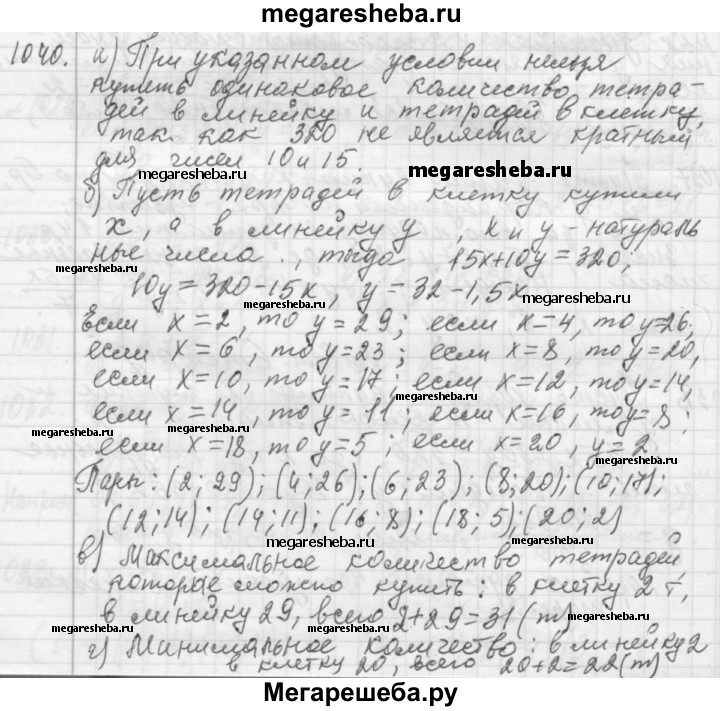 megaresheba.ru
1040. а) При указанном условии нельзя
купить одинаковое количество тетра-
дей в линейку и тетрадей в клетку,
так как 320 не является кратным
для чисел 10 и 15.
megaresheba.ru
б) Пусть тетрадей в клетку купили
x, а в линейку y, x и y - натураль
ные числа., тогда 15x+10y=320;
megaresheba.ru
megaresheba.ru
10y=320-15x, y=32-1,5x
megaresheba.ru
megaresheba.ru
Если x=2, то y=29; если x=4, то y=26,
если x=6, то y=23; если x=8, то y=20,
если x=10, то y=17; если x=12, то y=14,
если x=14, то y=11; если x=16, то y=8;
megaresheba.ru
megaresheba.ru
если x=18, то y=5; если x=20, y=2
megaresheba.ru
Пары: (2;29); (4;26); (6;23); (8;20); (10;17);
(12;14); (14;11); (16;8); (18;5); (20;2)
megaresheba.ru
megaresheba.ru
в) Максимальное количество тетрадей
которые можно купить: в клетку 2 т,
в линейку 29, всего 2+29=31 (т)
megaresheba.ru
megaresheba.ru
megaresheba.ru
г) Манимальное количество: в линейку 2
в клетку 20, всего 20+2=22(т)
Мегарешеба.ру